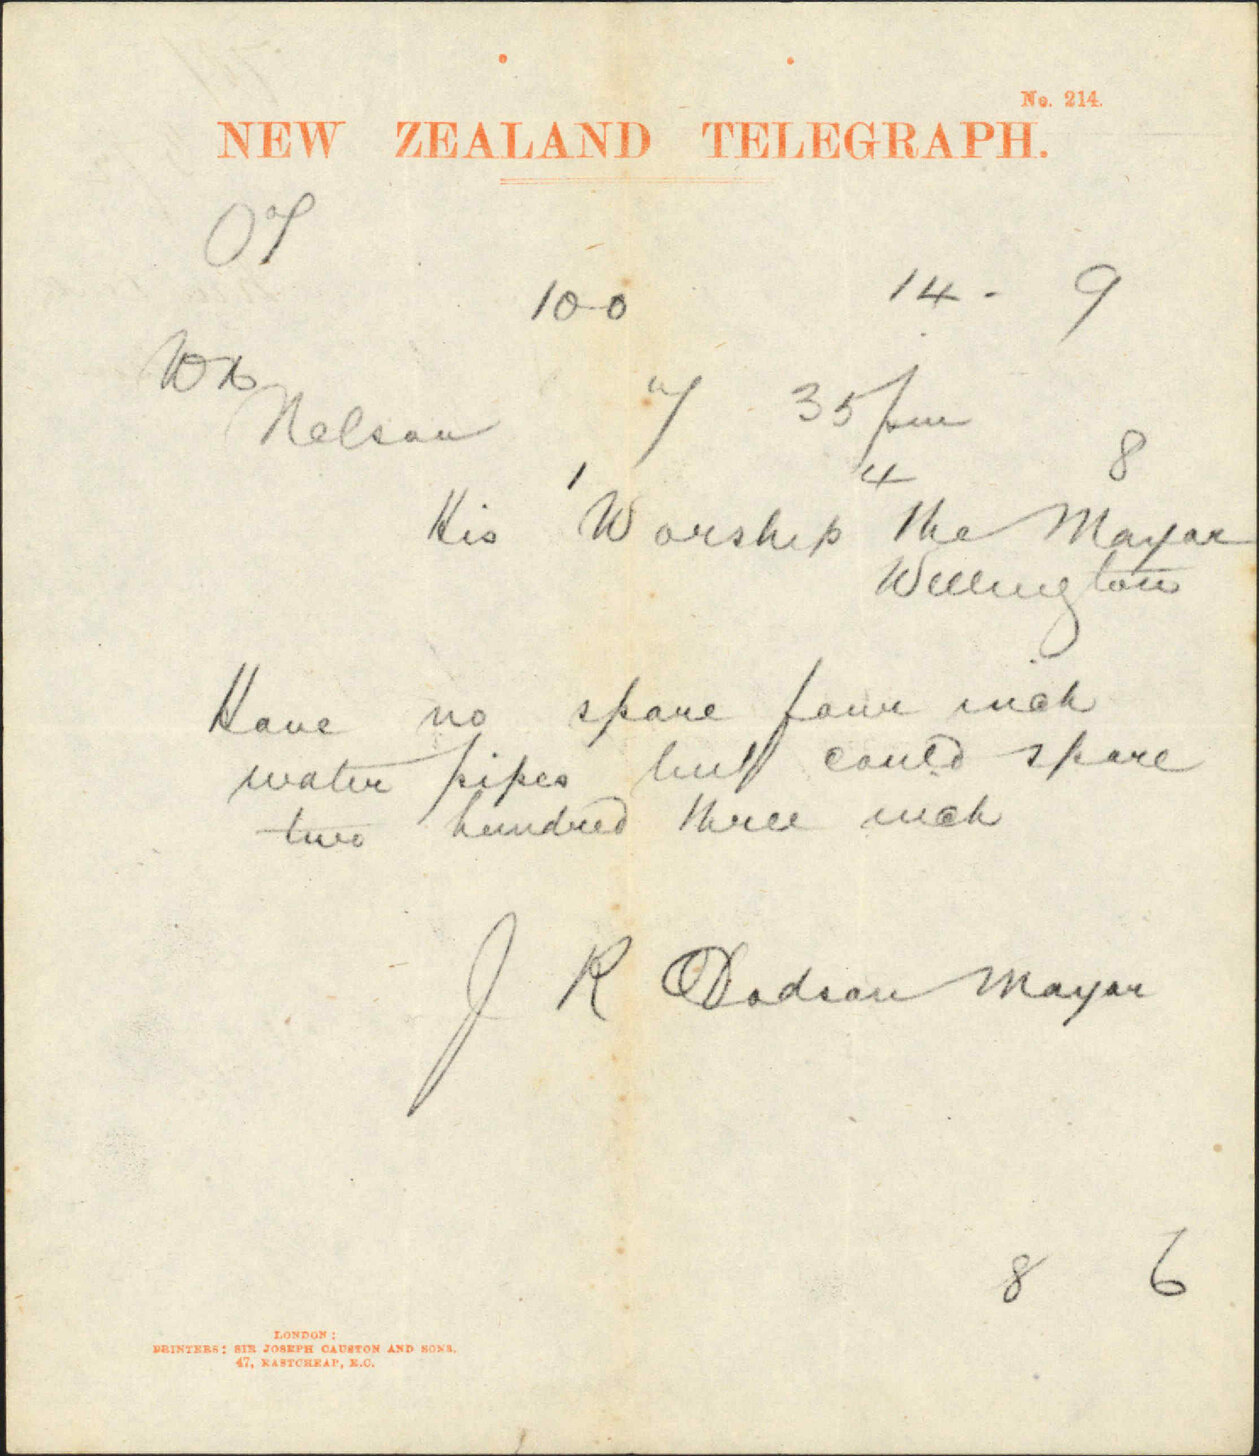 No. 214.
NEW ZEALAND TELEGRAPH.
100 14 - 9
Nelson 35 pm
4 8
His Worship the Mayor
Wellington
Have no spare four inch
water pipes but could spare
two hundred three inch
J R Dodson Mayor
8 6
LONDON:
PRINTERS: SIR JOSEPH CAUSTON AND SONS,
47, EASTCHEAP, E.C.